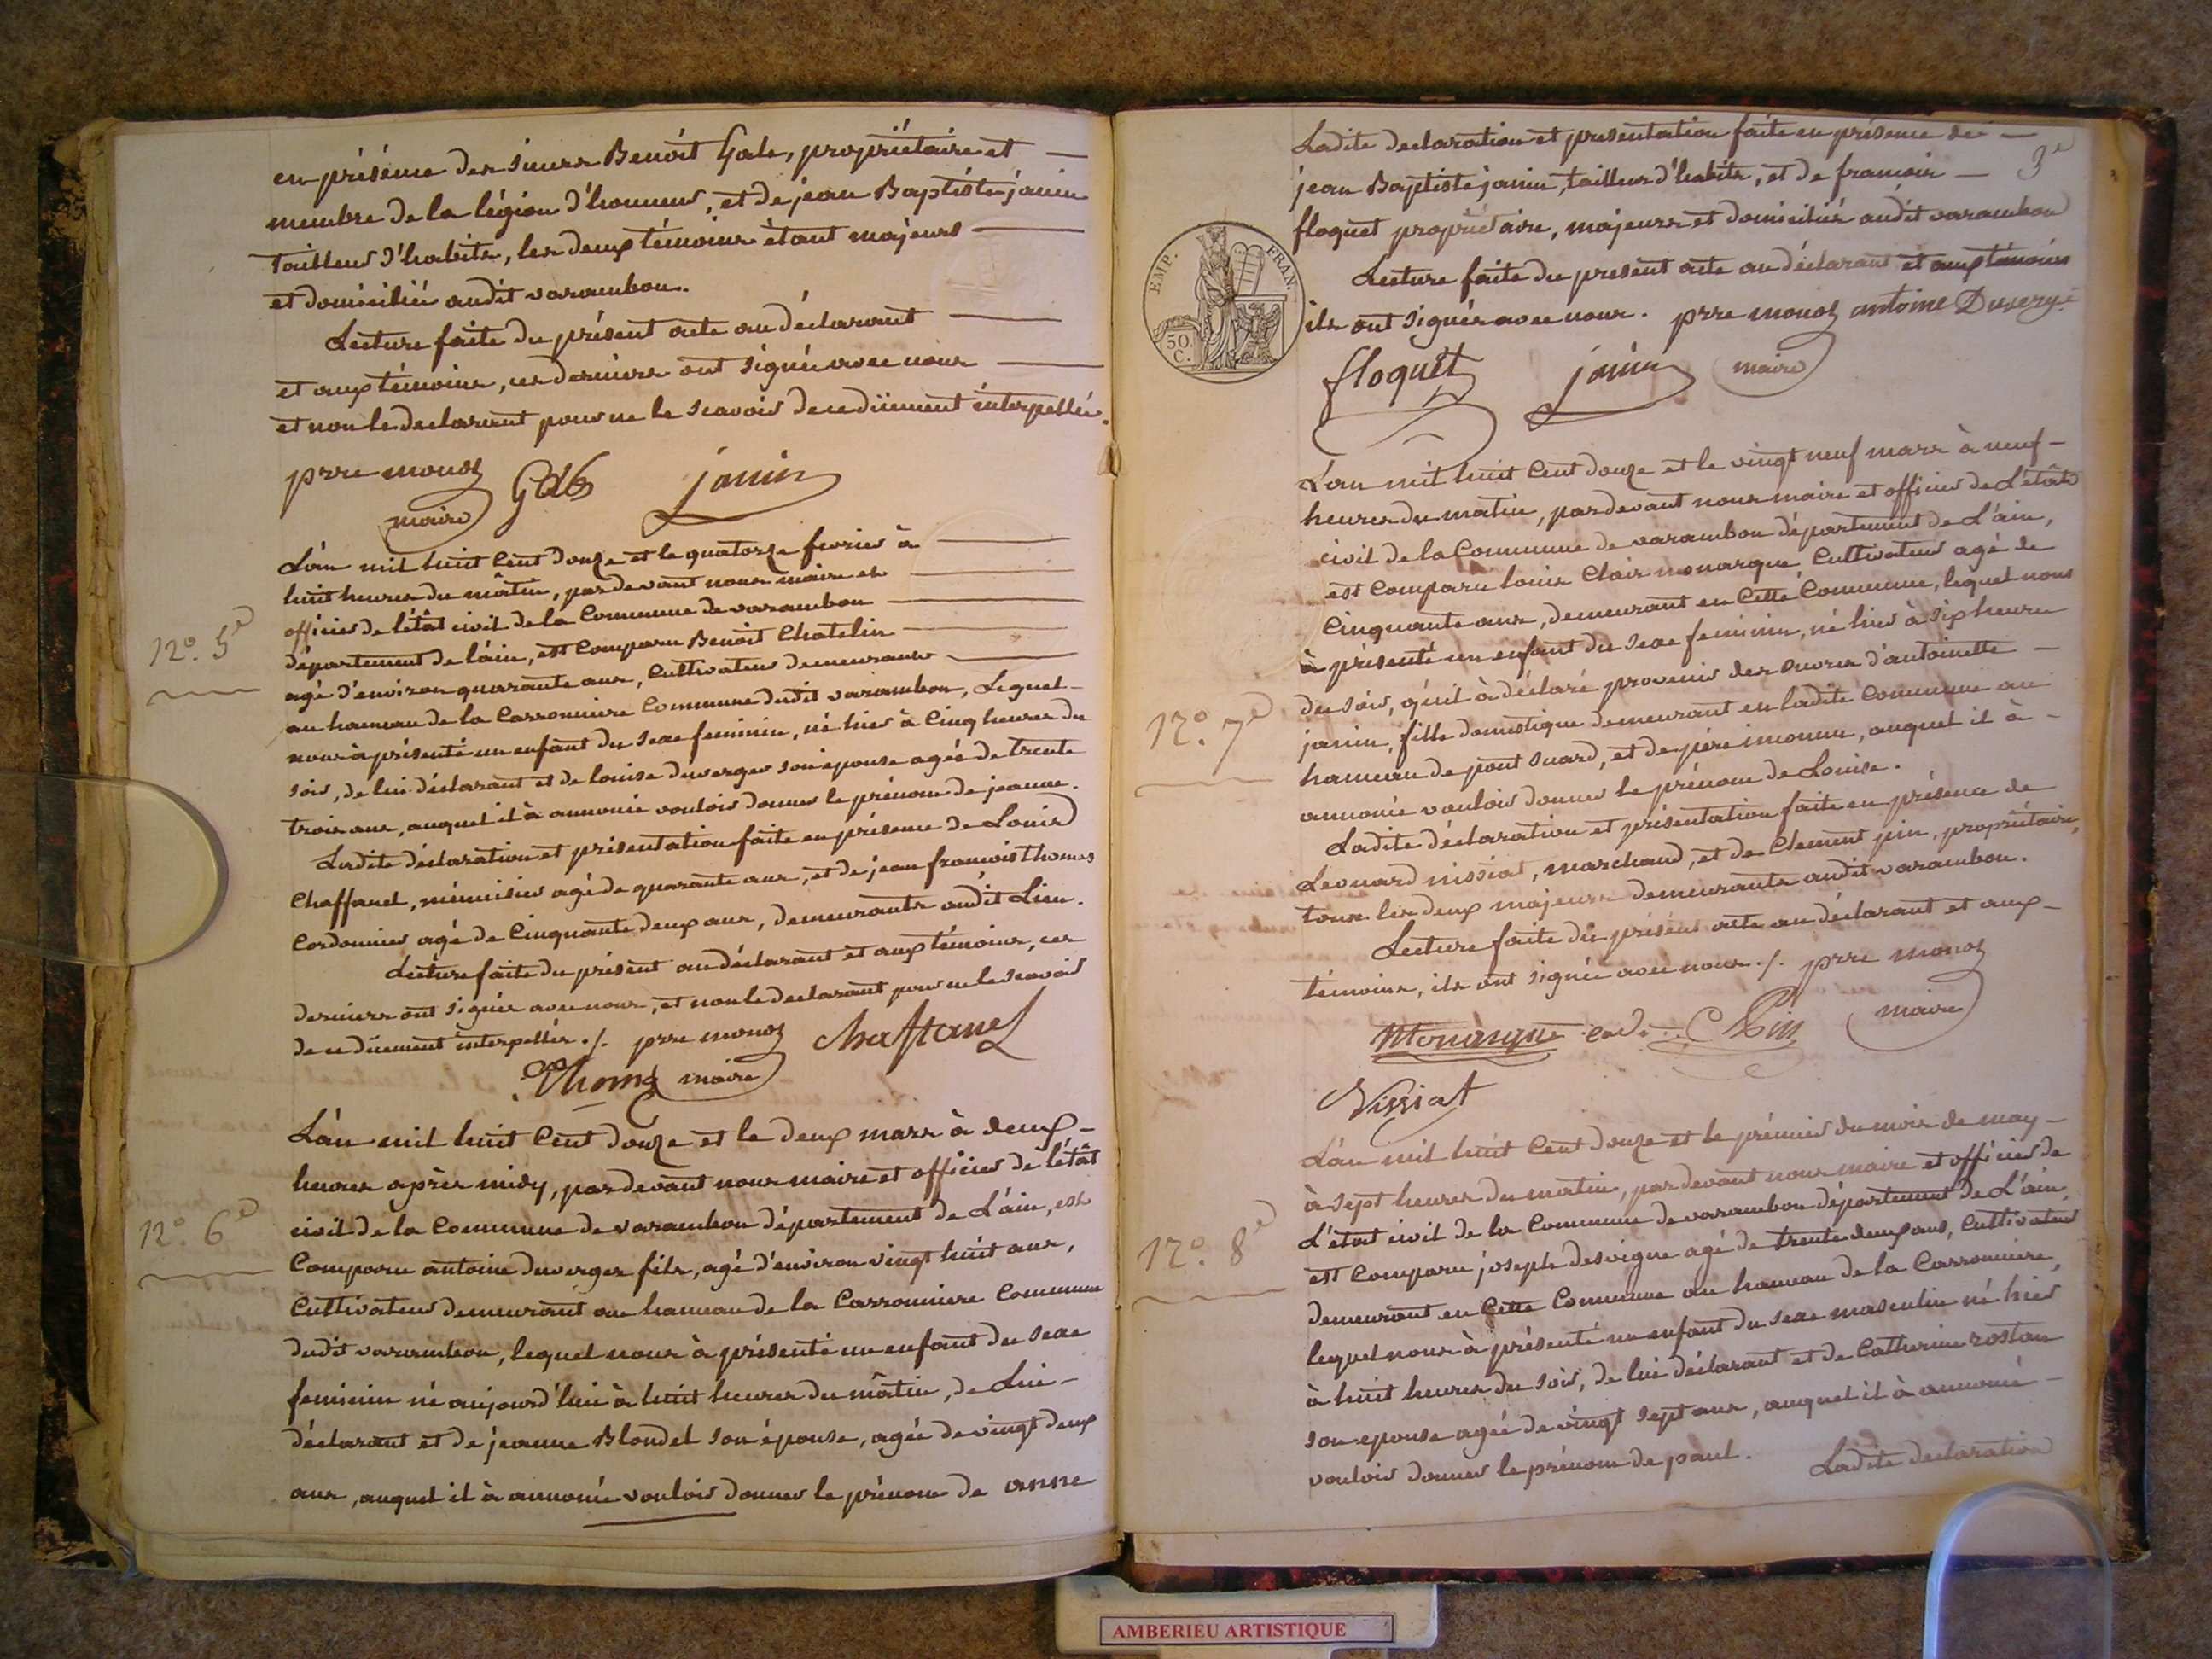 en présence des sieurs Benoit Gale, propriétaire et
membre de la légion d'honneur, et de jean Baptiste janin
tailleur d'habits, les deux témoins étant majeurs
et domiciliés audit varambon.
Lecture faite du présent acte au déclarant
et aux témoins, ces derniers ont signés avec nous
et non le declarant pour ne le scavoir de ce dûement interpellé.
prre monoz janin
maire
L'an mil huit cent douze et le quatorze fevrier à
huit heures du mâtin, pardevant nous maire et
officier de l'êtât civil de la Commune de varambon
N°. 5e
département de l'ain, est Comparu Benoit Chatelin
agé d'environ quarante ans, Cultivateur demeurant
au hameau de la Carronniere Commune dudit varambon, Lequel
nous à présenté un enfant du sexe feminin, né hier à cinq heures du
soir, de lui déclarant et de louise duverger son épouse agée de trente
trois ans, auquel il à annoncé vouloir donner le prénom de jeanne.
Ladite déclaration et présentation faite en présence de Louis
Chaffanel, ménuisier agé de quarante ans, et de jean francois thomas
Cordonnier agé de Cinquante deux ans, demeurants audit Lieu.
Lecture faite du présent au déclarant et aux témoins, ces
derniers ont signés avec nous, et non le declarant pour ne le scavoir
de ce dûement interpellés ./. prre monoz Chaffanel
Thomas maire
L'an mil huit Cent douze et le deux mars à deux
heures après midy, pardevant nous maire et officier de l'êtât
N°. 6e
civil de la Commune de varambon département de L'ain, est
Comparu antoine duverger fils, agé d'environ vingt huit ans,
Cultivateur demeurant au hameau de la Carronniere Commune
dudit varambon, lequel nous à présenté un enfant du sexe
feminin né aujourd'hui à huit heures du mâtin, de Lui
déclarant et de jeanne Blondel son épouse, agée de vingt deux
ans, auquel il à annoncé vouloir donner le prénom de anne
3e
Ladite declaration et presentation faite en présence de
jean Baptiste janin, tailleur d'habits, et de francois
floquet propriétaire, majeurs et domiciliés audit varambon
Lecture faite du present acte au déclarant et aux témoins
ils ont signés avec nous. prre monoz antoine Duverge
floquet janin maire
EMP. FRAN.
50 C.
L'an mil huit Cent douze et le vingt neuf mars à neuf
heures du matin, pardevant nous maire et officier de L'êtât
civil de la Commune de varambon département de L'ain,
est Comparu louis Clair monarque Cultivateur agé de
Cinquante ans, demeurant en Cette Commune, lequel nous
à présenté un enfant du sexe feminin, né hier à six heures
du soir, qu'il à déclaré provenir des œuvres d'antoinette
N°. 7e
janin, fille domestique demeurant en ladite Commune au
hameau de pont suard, et de père inconnu, auquel il à
annoncé vouloir donner le prénom de Louise.
Ladite déclaration et présentation faite en présence de
Leonard nissiat, marchand, et de Clement pin, propriétaire,
tous les deux majeurs demeurants audit varambon.
Lecture faite du présent acte au déclarant et aux
témoins, ils ont signés avec nous ./. prre monoz
Monarque C Pin maire
Nissiat
L'an mil huit Cent douze et le prémier du mois de may
à sept heures du matin, pardevant nous maire et officier de
N°. 8e
L'état civil de la Commune de varambon département de L'ain,
est Comparu joseph desvigne agé de trente deux ans, Cultivateur
demeurant en Cette Commune au hameau de la Carronniere,
lequel nous à présenté un enfant du sexe masculin né hier
à huit heures du soir, de lui déclarant et de Catherine rostan
son epouse agée de vingt sept ans, auquel il à annoncé
vouloir donner le prénom de paul. Ladite declaration
AMBERIEU ARTISTIQUE